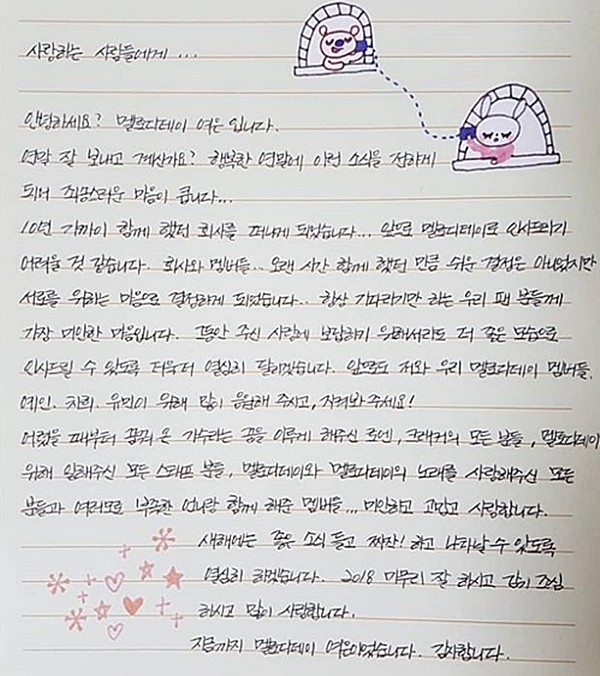 사랑하는 사람들에게 ...
안녕하세요? 멜로디데이 여은 입니다.
연말 잘 보내고 계신가요? 행복한 연말에 이런 소식을 전하게
되어 죄송스러운 마음이 큽니다...
10년 가까이 함께 했던 회사를 떠나게 되었습니다... 앞으로 멜로디데이로 인사드리기
어려울 것 같습니다. 회사와 멤버들.. 오랜 시간 함께 했던 만큼 쉬운 결정은 아니었지만
서로를 위하는 마음으로 결정하게 되었습니다.. 항상 기다리기만 하는 우리 팬 분들께
가장 미안한 마음입니다. 그동안 주신 사랑에 보답하기 위해서라도 더 좋은 모습으로
인사드릴 수 있도록 더욱더 열심히 달리겠습니다. 앞으로도 저와 우리 멜로디데이 멤버들.
예인. 차희. 유민이 위해 많이 응원해 주시고, 지켜봐 주세요!
어렸을 때부터 꿈꿔 온 가수라는 꿈을 이루게 해주신 로엔, 크래커의 모든 분들, 멜로디데이
위해 일해주신 모든 스태프 분들, 멜로디데이와 멜로디데이의 노래를 사랑해주신 모든
분들과 여러모로 부족한 언니랑 함께 해준 멤버들... 미안하고 고맙고 사랑합니다.
새해에는 좋은 소식 들고 짜잔! 하고 나타날 수 있도록
열심히 하겠습니다. 2018 마무리 잘 하시고 감기 조심
하시고 많이 사랑합니다.
지금까지 멜로디데이 여은이었습니다. 감사합니다.